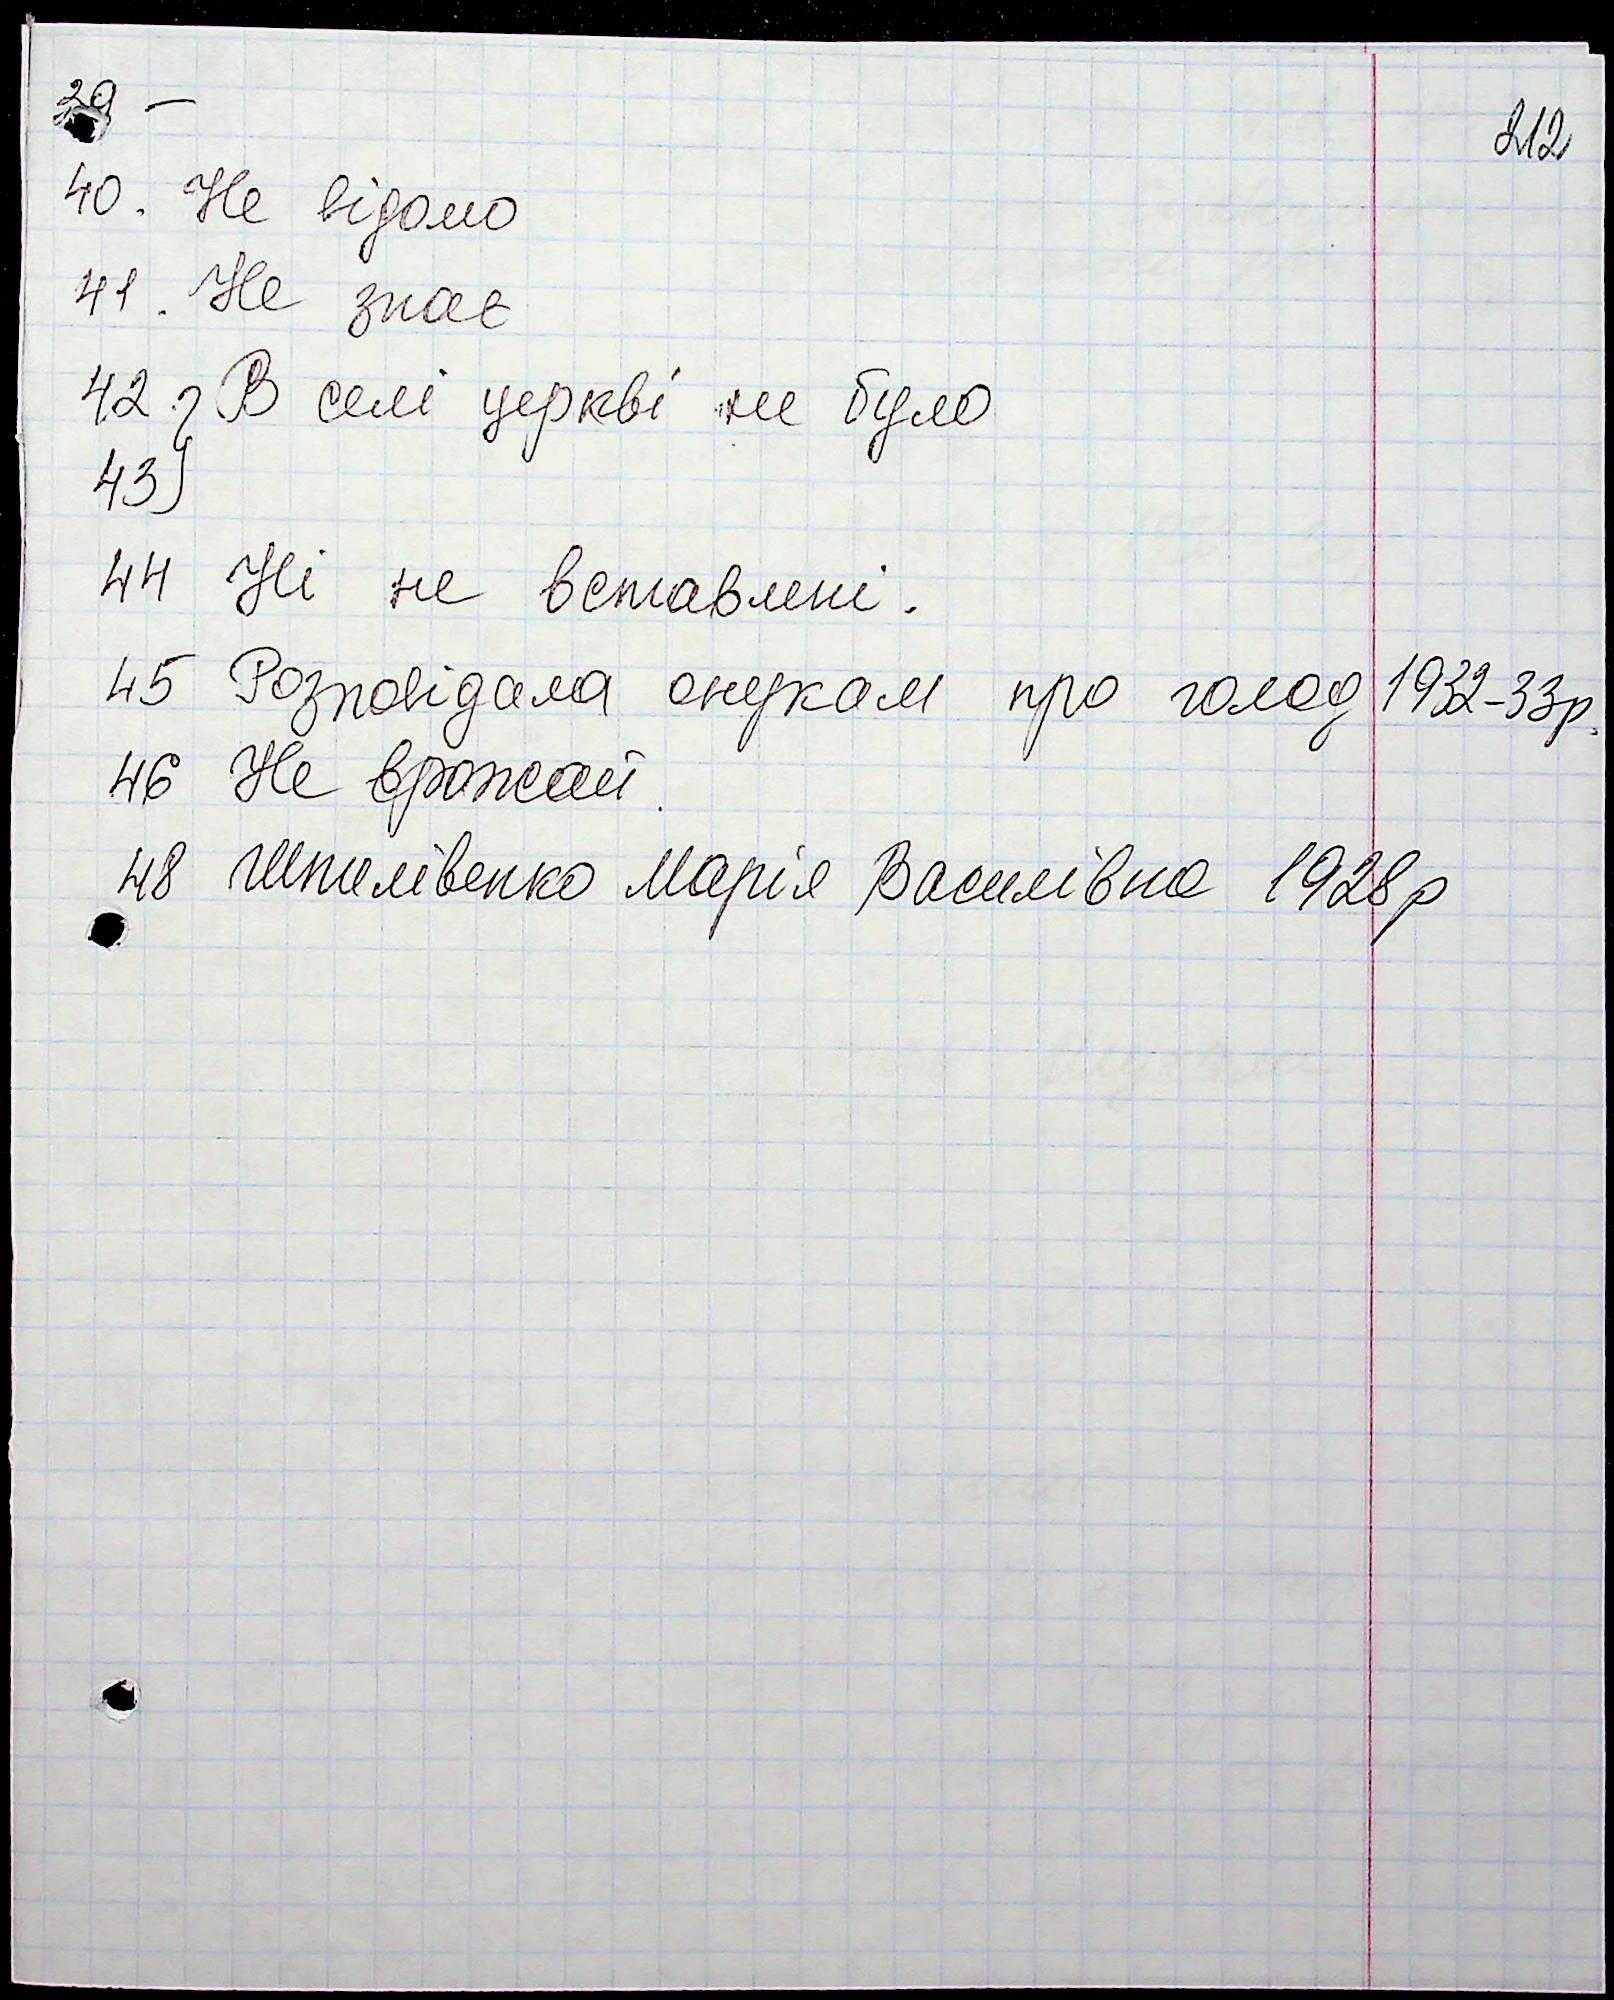 212
39 –
40. Не відомо
41. Не знає
42. } В селі церкві не було
43 }
44 Ні не вставлені.
45 Розповідала онукам про голод 1932-33р.
46 Не врожай.
48 Шпилівенко Марія Василівна 1928р